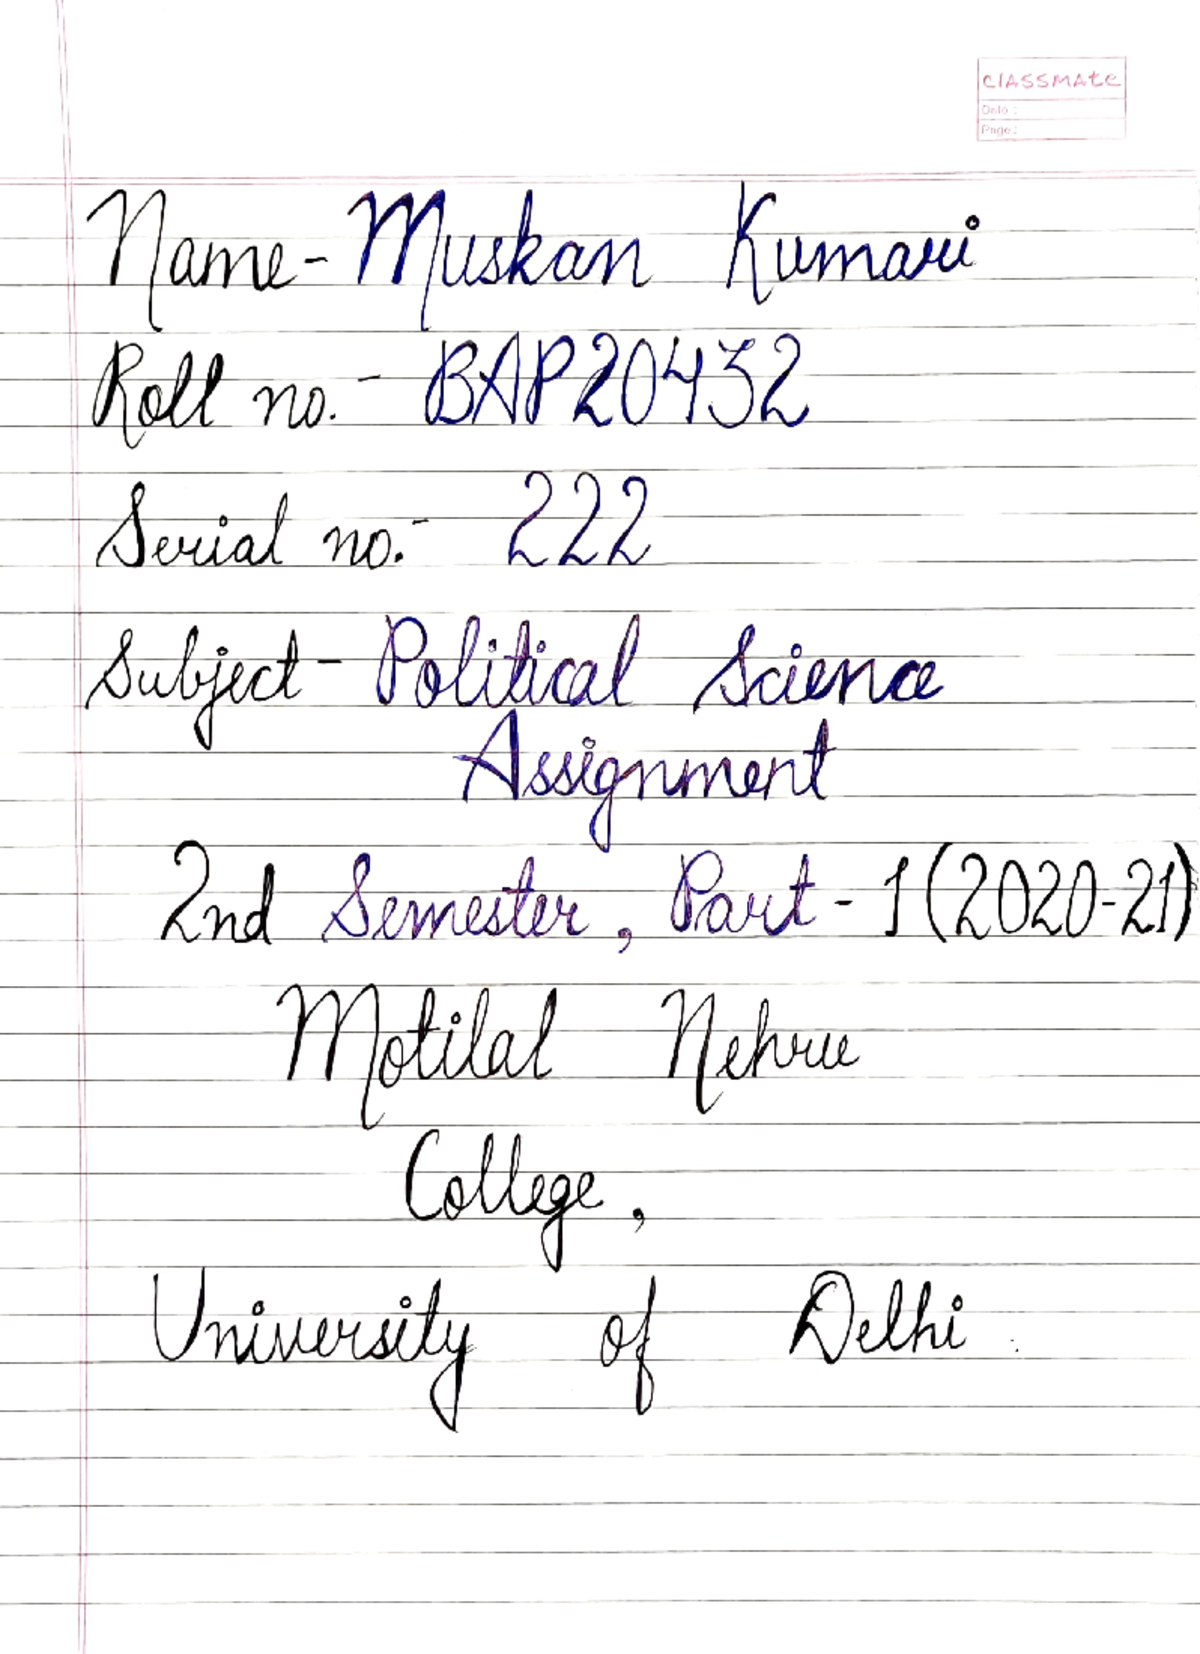 CLASSMATE
Date :
Page :
Name - Muskan Kumari
Roll no. - BAP20432
Serial no. - 222
Subject - Political Science
Assignment
2nd Semester, Part - 1 (2020-21)
Motilal Nehru
College,
University of Delhi